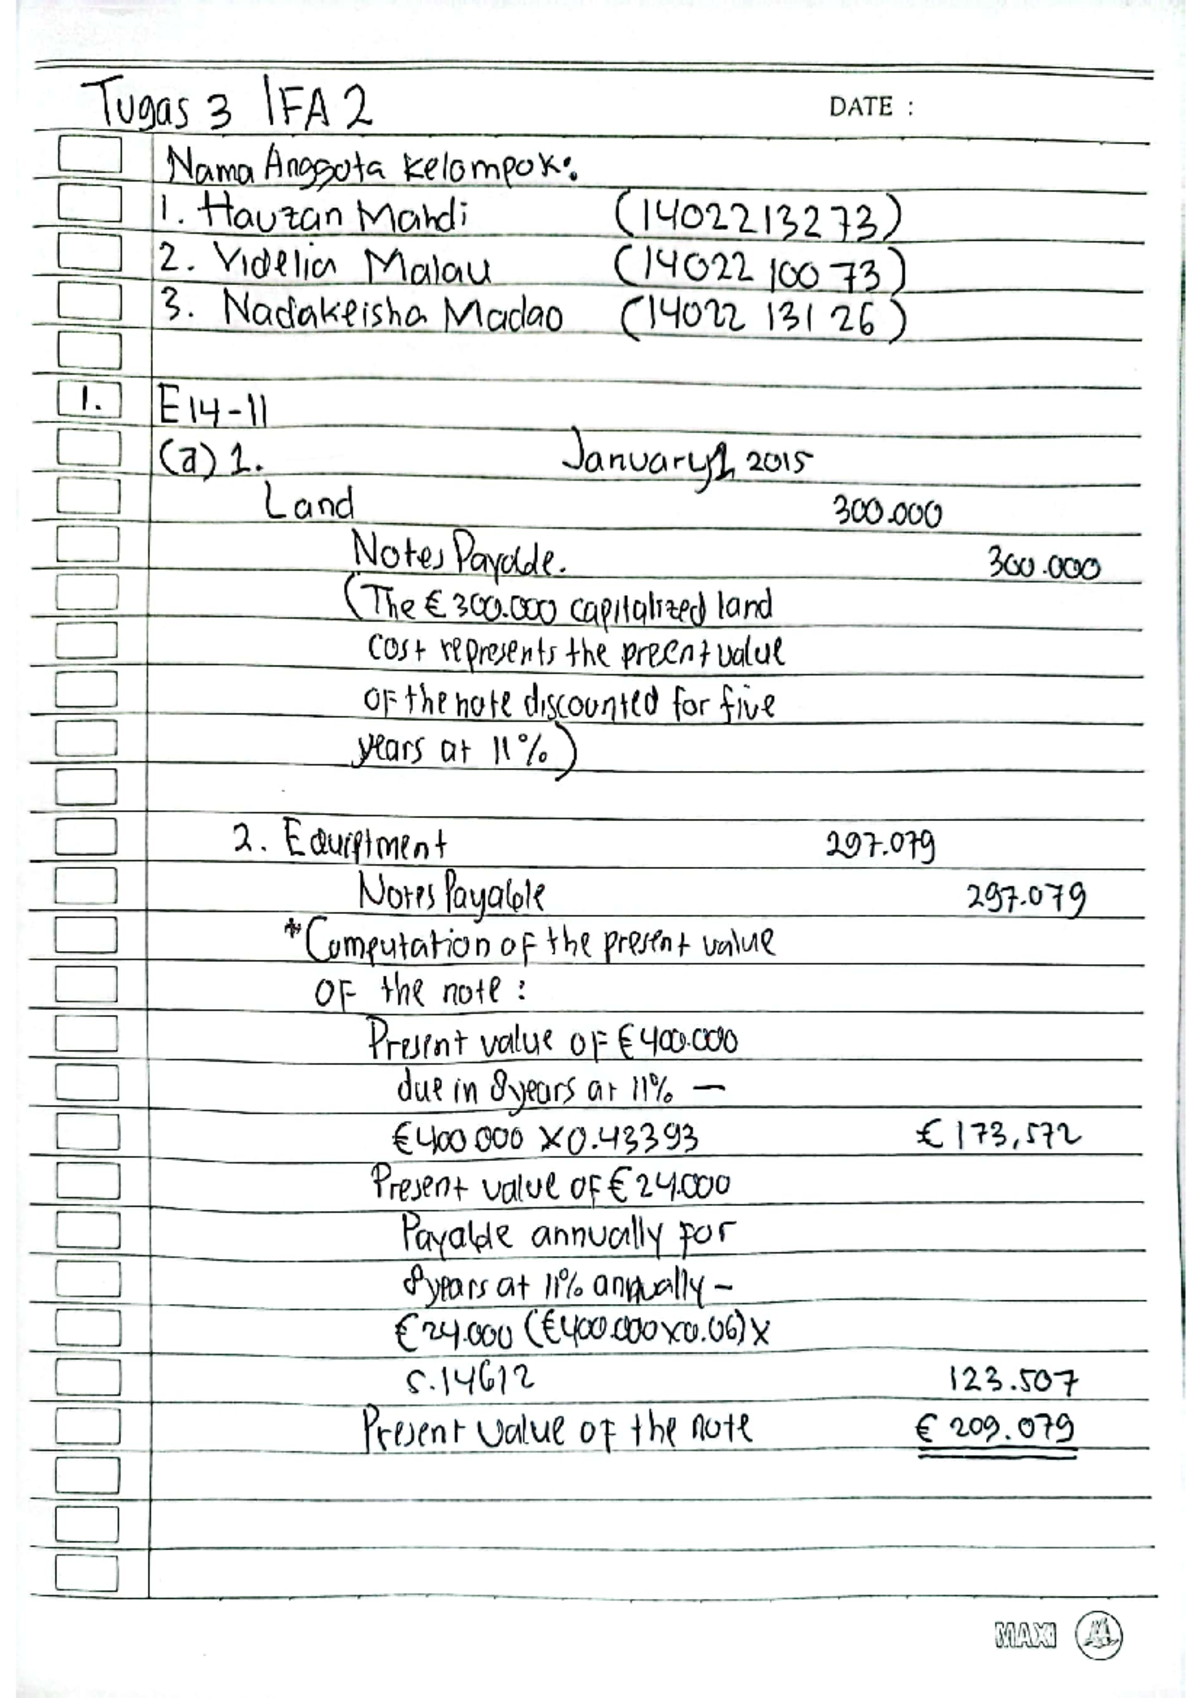 Tugas 3 IFA 2
DATE :
Nama Anggota Kelompok:
1. Hauzan Mahdi (1402213273)
2. Videlia Malau (14022 100 73)
3. Nadakeisha Madao (14022 131 26)
1. E14-11
(a) 1. January 1, 2015
Land 300.000
Notes Payable. 300.000
(The € 300.000 capitalized land
cost represents the precnt value
OF the note discounted for five
years at 11%)
2. Equiptment 297.079
Notes Payable 297.079
*Computation OF the present value
OF the note :
Present value OF € 400.000
due in 8 years at 11% —
€ 400 000 X 0.43393 € 173,572
Present value OF € 24.000
Payable annually for
8 years at 11% annually –
€ 24.000 (€400.000 x 0.06) X
5.14612 123.507
Present value OF the note € 209.079
MAXI